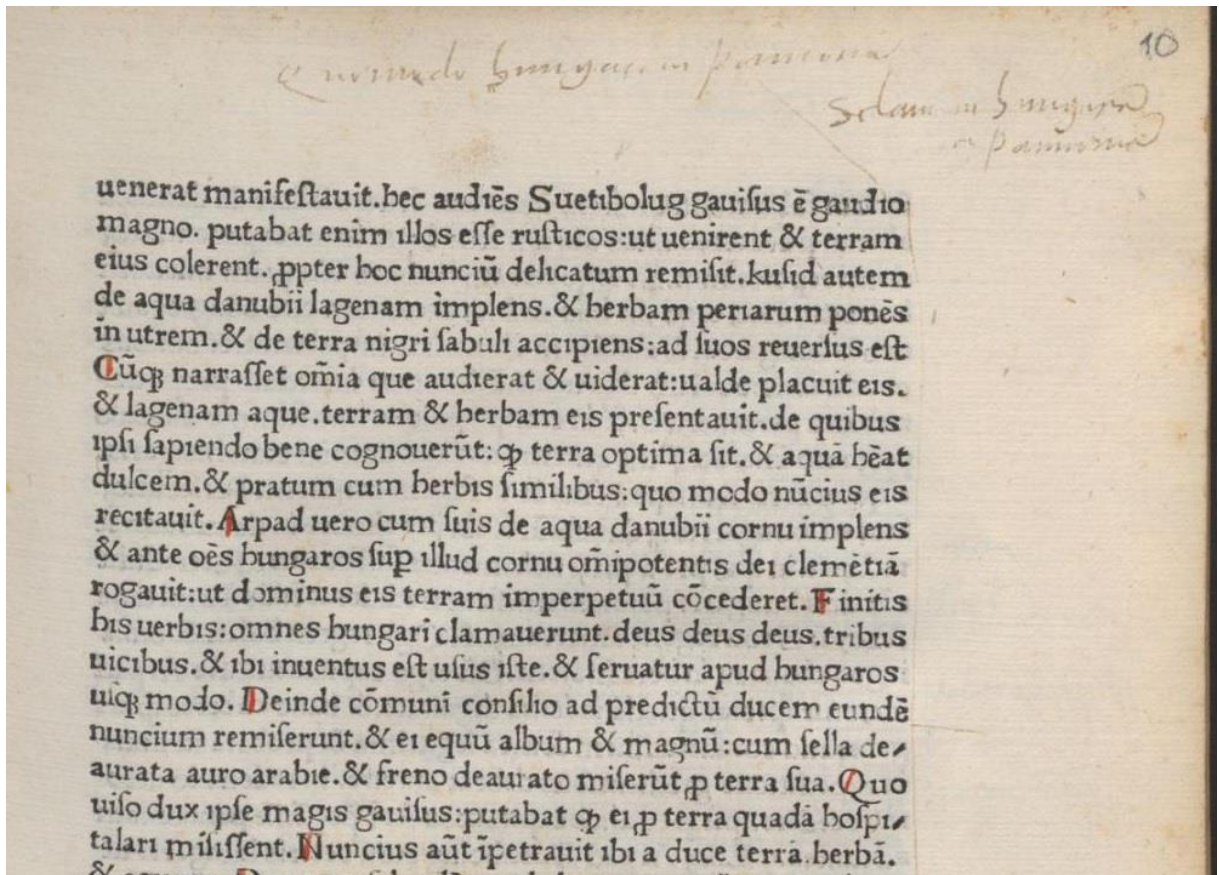 Quomodo hungari in pannonia
10
in hungaria
pannonia
uenerat manifeſtauit.hec audiēs Suetibolug gauiſus ē gaudio
magno. putabat enim illos eſſe ruſticos:ut uenirent & terram
eius colerent. ꝓpter hoc nunciū delicatum remiſit.kuſid autem
de aqua danubii lagenam implens.& herbam periarum ponēs
in utrem.& de terra nigri ſabuli accipiens:ad ſuos reuerſus eſt
Cūqꝫ narraſſet om̄ia que audierat & uiderat:ualde placuit eis.
& lagenam aque.terram & herbam eis preſentauit.de quibus
ipſi ſapiendo bene cognouerūt: ꝙ terra optima ſit.& aquā hēat
dulcem.& pratum cum herbis ſimilibus:quo modo nūcius eis
recitauit. Arpad uero cum ſuis de aqua danubii cornu implens
& ante oēs hungaros ſuꝑ illud cornu om̄ipotentis dei clemētiā
rogauit:ut dominus eis terram imperpetuū cōcederet. Finitis
his uerbis:omnes hungari clamauerunt.deus deus deus.tribus
uicibus.& ibi inuentus eſt uſus iſte.& ſeruatur apud hungaros
uſqꝫ modo. Deinde cōmuni conſilio ad predictū ducem eundē
nuncium remiſerunt.& ei equū album & magnū:cum ſella de⸗
aurata auro arabie.& freno deaurato miſerūt ꝓ terra ſua. Quo
uiſo dux ipſe magis gauiſus:putabat ꝙ ei ꝓ terra quadā hoſpi⸗
talari miſiſſent. Nuncius aūt īpetrauit ibi a duce terrā.herbā.